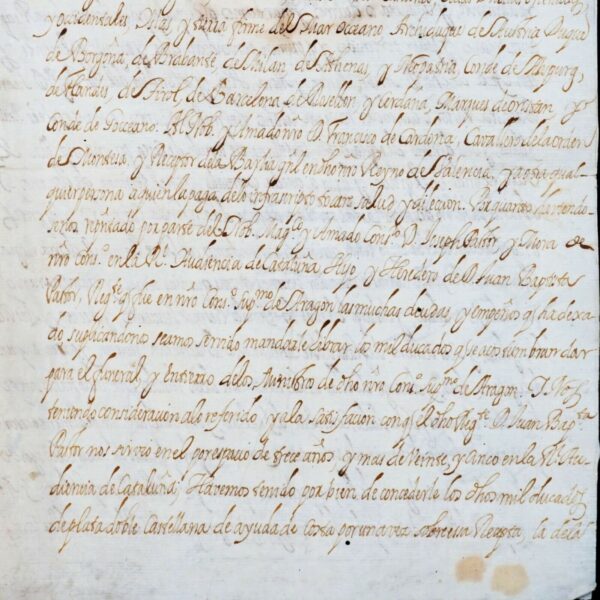 y occidentales Islas y tierra firme del Mar oceano Archiduque de Austria Duque
de Borgoña, de Brabante de Milan de Athenas, y Neopatria, Conde de Aspurg,
de Flandes de Tirol, de Barcelona de Rosellon y Cerdaña, Marques de oristan, y
Conde de Goceano. Al Nob. y Amado nr̃o D. Francisco de Cardona, Cavallero de la orden
de Montesa, y Receptor de la Baylia gñl en el nr̃o Reyno de Valencia, y a otra qual-
quier persona a quien la paga de lo infrascripto salud y dileccion. Por quanto haviendo-
senos representado por parte del Nob. Mag.co y Amado Cons.o D. Joseph Pastor, y Mora
nr̃o Cons.o en la R.l Audiencia de Cataluña Hijo, y Heredero de D. Juan Baptista
Pastor, Reg.te q̃ fue en nr̃o Cons.o Sup.mo de Aragon las muchas deudas, y empeños q̃ ha dexa-
do suplicandonos seamos servido mandarle librar los mil ducados q̃ se acostumbran dar
para el funeral, y entierro de los Ministros de dho nr̃o Cons.o Sup.mo de Aragon. Y Nos
teniendo consideracion a lo referido, y a la satisfacion con q̃ el dho Reg.te D. Juan Bap.ta
Pastor nos sirvio en el por espacio de trece años, y mas de Veinte, y cinco en la R.l Au-
diencia de Cataluña; Havemos tenido por bien de concederle los dhos mil ducados
de plata doble Castellana de ayuda de Costa por una vez sobre essa Recepta, la de la